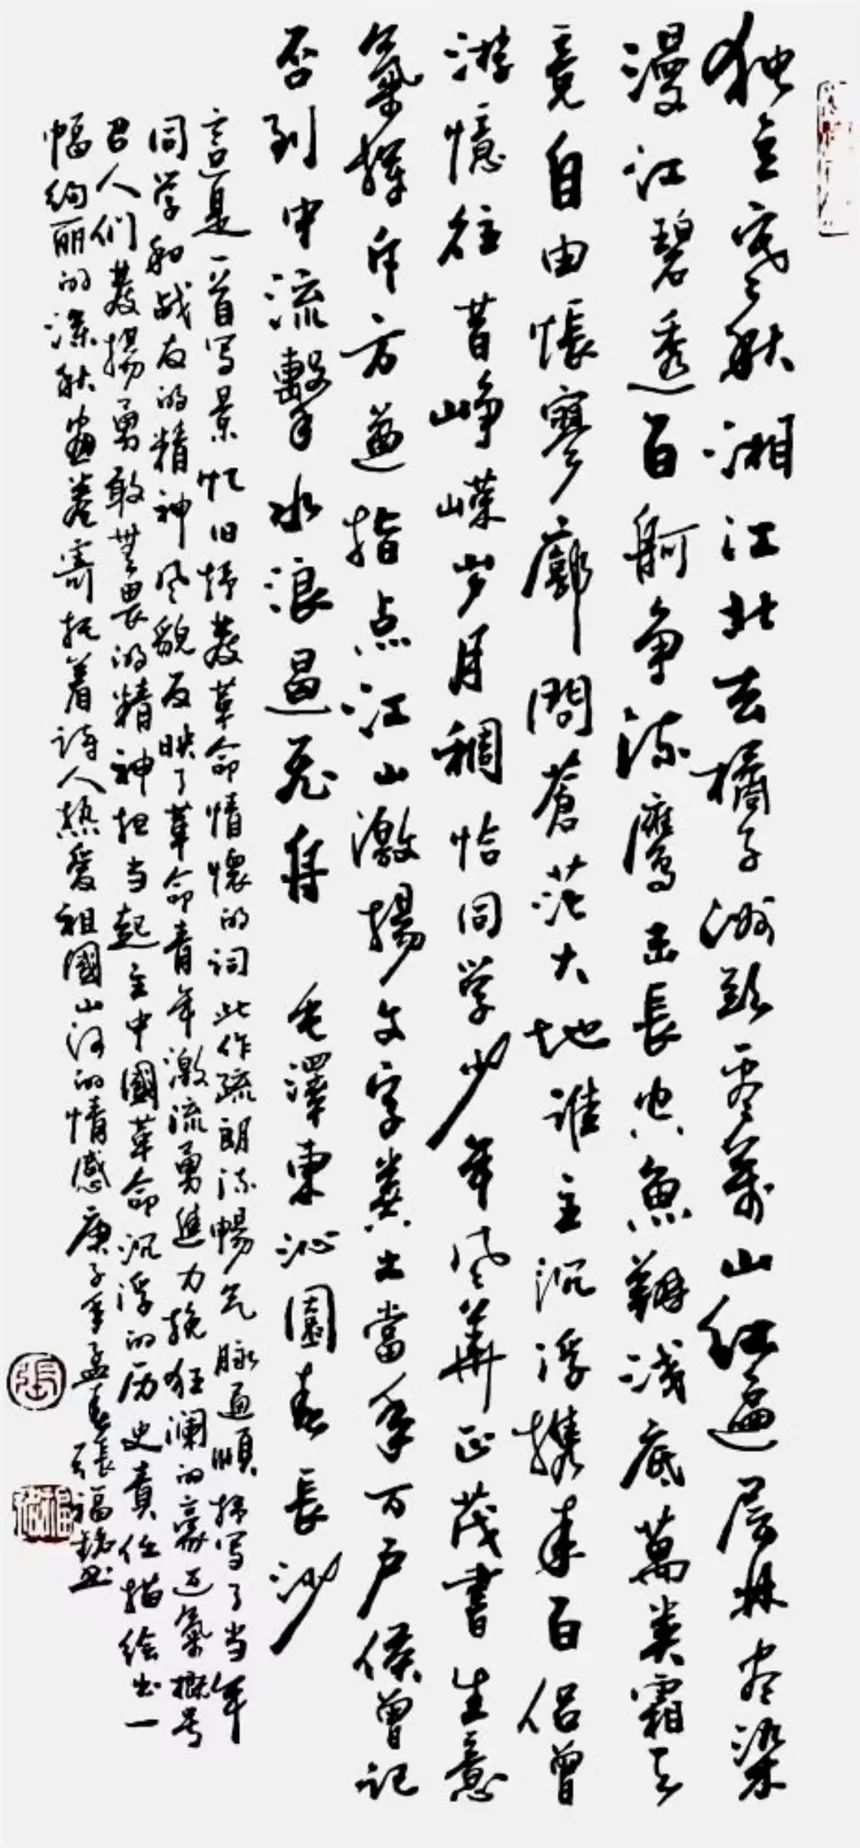 独立寒秋湘江北去橘子洲头看萬山红遍层林尽染
漫江碧透百舸争流鹰击長空魚翔浅底萬类霜天
竟自由悵寥廓問蒼茫大地谁主沉浮携来百侣曾
游憶往昔峥嵘岁月稠恰同学少年风華正茂書生意
氣揮斥方遒指点江山激揚文字粪土當年万户侯曾记
否到中流擊水浪遏飞舟 毛澤東沁園春長沙
言这是一首写景忆旧抒發革命情懷的词此作疏朗流暢气脉通順抒写了当年
同学和战友的精神风貌反映了革命青年激流勇進力挽狂澜的豪迈氣概号
召人们發揚勇敢無畏的精神担当起主中國革命沉浮的历史责任描绘出一
幅绚丽的深秋畫卷寄托着诗人热爱祖國山河的情感庚子年孟春張福书